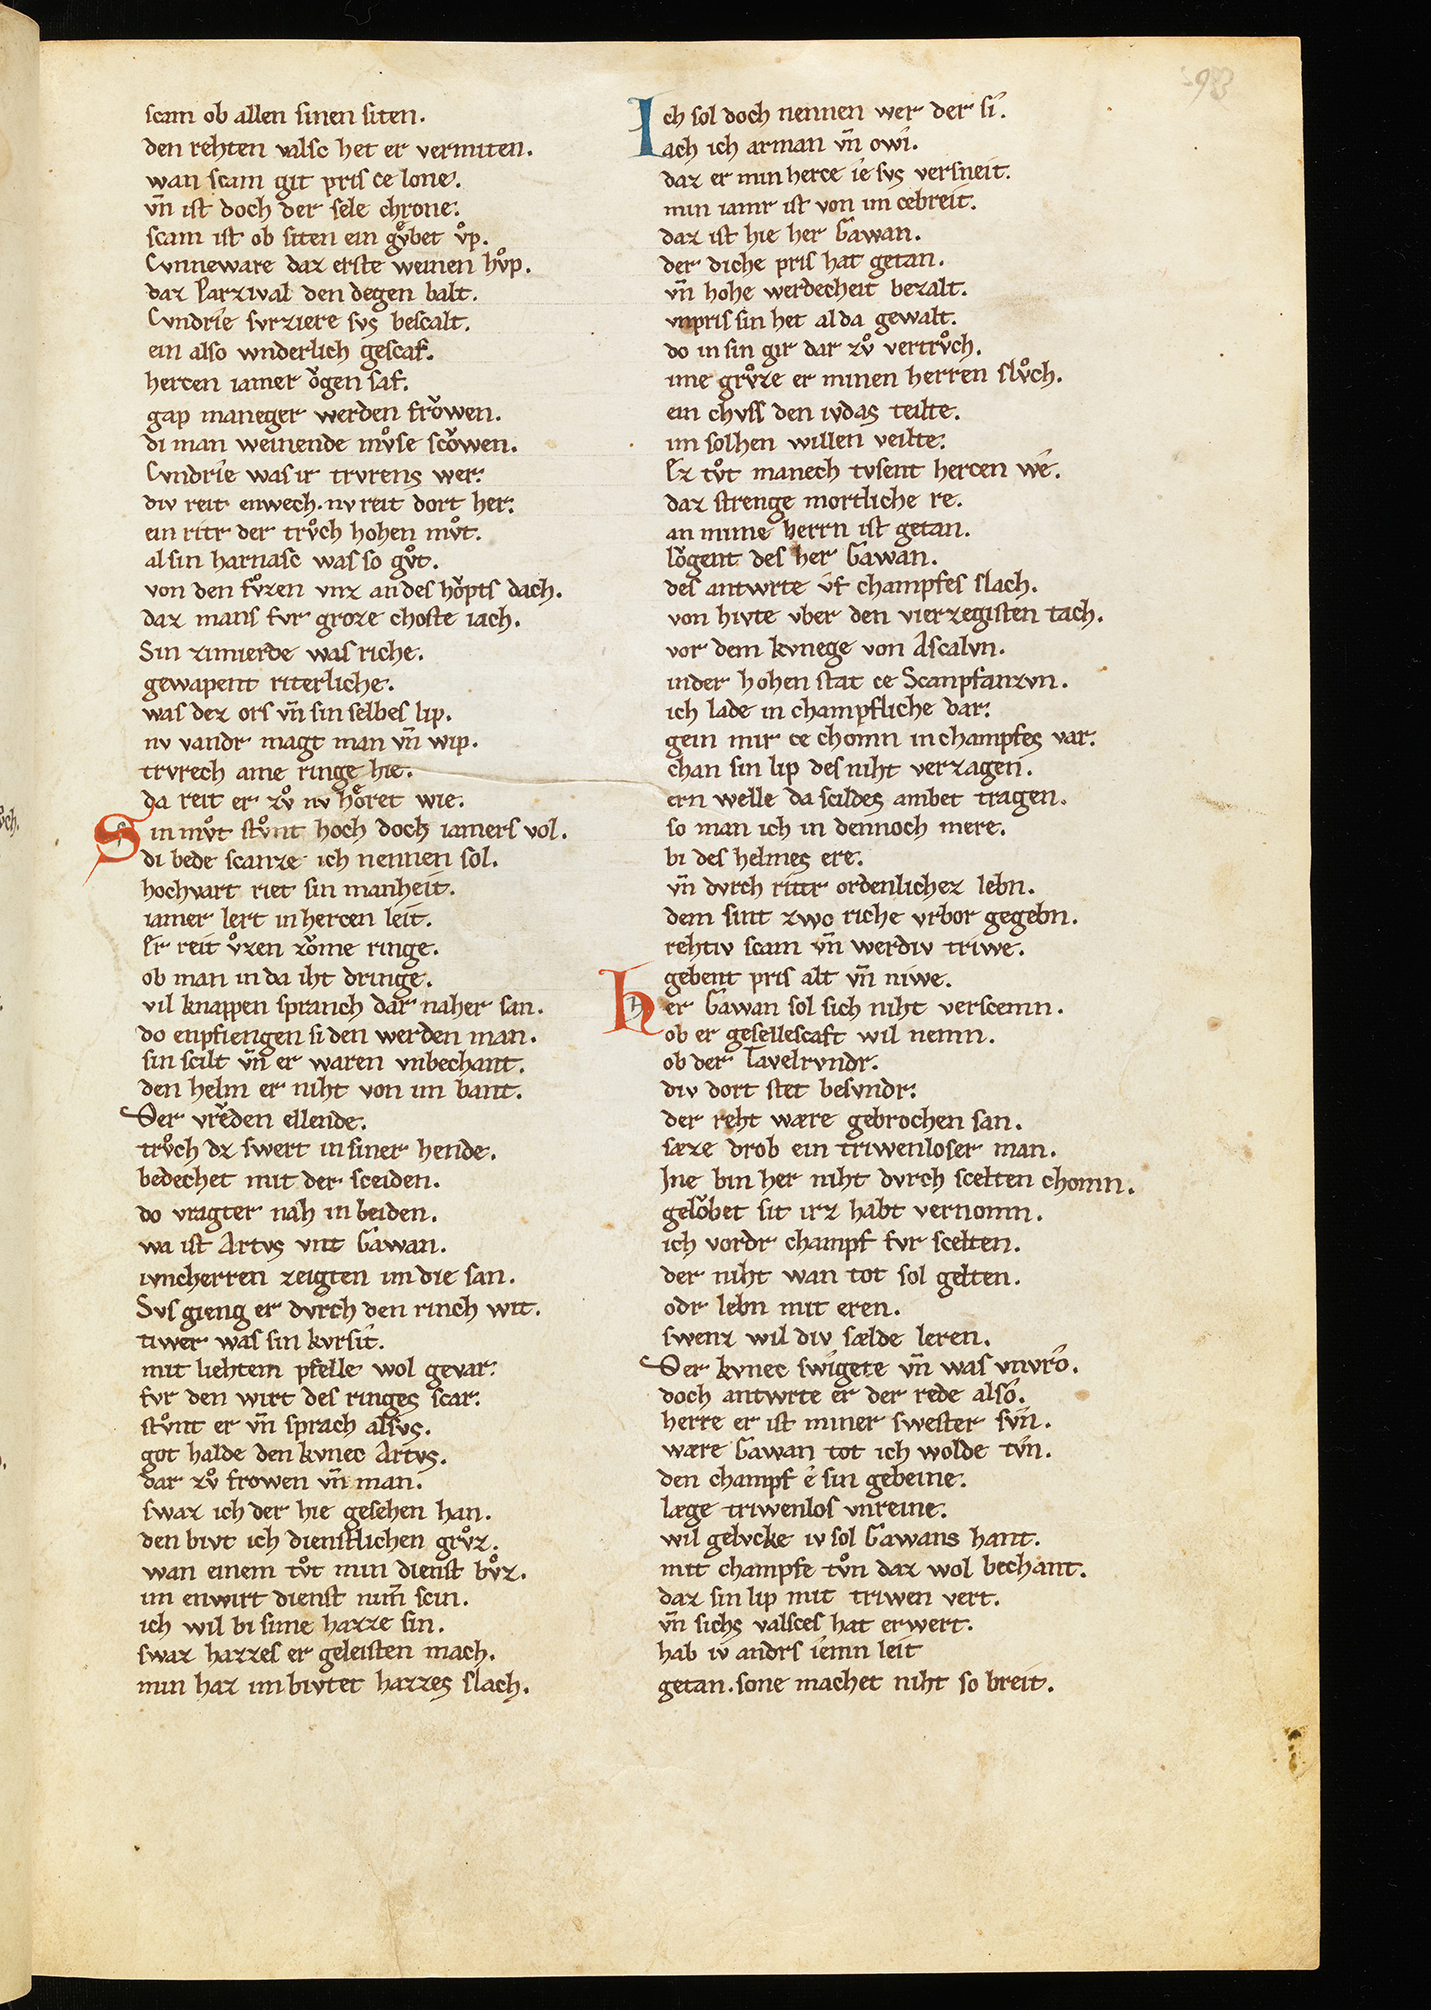 scam ob allen sinen siten.
den rehten valsc het er vermiten.
wan scam git pris ce lone.
vn̄ ist doch der sele chrone.
scam ist ob siten ein gvͦbet vͦp.
Cvnneware daz erste weinen hvͦp.
daz Parzival den degen balt.
Cvndrie svrziere svs bescalt.
ein also wnderlich gescaf.
hercen iamer oͮgen saf.
gap maneger werden froͮwen.
di man weinende mvͦse scoͮwen.
Cvndrie was ir trvrens wer.
div reit enwech. nv reit dort her.
ein ritr der trvͦch hohen mvͦt.
al sin harnasc was so gvͦt.
von den fvͦzen vnz an des hoͮpts dach.
daz mans fvr groze choste iach.
Sin zimierde was riche.
gewapent riterliche.
was dez ors vn̄ sin selbes lip.
nv vandr magt man vn̄ wip.
trvrech ame ringe hie.
da reit er zvͦ nv hoͤret wie.
Sin mvͦt stvͦnt hoch doch iamers vol.
di bede scanze ich nennen sol.
hochvart riet sin manheit.
iamer lert in hercen leit.
Er reit vͦzen zoͮme ringe.
ob man in da iht dringe.
vil knappen spranch dar naher san.
do enpfiengen si den werden man.
sin scilt vn̄ er waren vnbechant.
den helm er niht von im bant.
Der vreͮden ellende.
trvͦch dz swert in siner hende.
bedechet mit der sceiden.
do vragter nah in beiden.
wa ist Artvs vnt Gawan.
ivncherren zeigten im die san.
Svs gieng er dvrch den rinch wit.
tiwer was sin kvrsit.
mit liehtem pfelle wol gevar.
fvr den wirt des ringes scar.
stvͦnt er vn̄ sprach alsvs.
got halde den kvnec Artvs.
dar zvͦ frowen vn̄ man.
swaz ich der hie gesehen han.
den bivt ich dienstlichen grvͦz.
wan einem tvͦt min dienst bvͦz.
im enwirt dienst nim̄ scin.
ich wil bi sime hazze sin.
swaz hazzes er geleisten mach.
min haz im bivtet hazzes slach.
Ich sol doch nennen wer der si.
ach ich arman vn̄ owi.
daz er min herce ie svs versneit.
min iamr ist von im cebreit.
daz ist hie her Gawan.
der diche pris hat getan.
vn̄ hohe werdecheit bezalt.
vnpris sin het al da gewalt.
do in sin gir dar zvͦ vertrvͦch.
ime grvͦze er minen herren slvͦch.
ein chvss den ivdas teilte.
im solhen willen veilte.
Ez tvͦt manech tvsent hercen we.
daz strenge mortliche re.
an mime herrn ist getan.
loͮgent des her Gawan.
des antwrte vf champfes slach.
von hivte vber den vierzegisten tach.
vor dem kvnege von Ascalvn.
in der hohen stat ce Scanpfanzvn.
ich lade in champfliche dar.
gein mir ce chomn in champfes var.
chan sin lip des niht verzagen.
ern welle da scildes ambet tragen.
so man ich in dennoch mere.
bi des helmes ere.
vn̄ dvrch rittr ordenlichez lebn.
dem sint zwo riche vrbor gegebn.
rehtiv scam vn̄ werdiv triwe.
gebent pris alt vn̄ niwe.
her Gawan sol sich niht verscemn.
ob er gesellescaft wil nemn.
ob der Tavelrvndr.
div dort stet besvndr.
der reht wære gebrochen san.
sæze drob ein triwenloser man.
Ine bin her niht dvrch scelten chomn.
geloͮbet sit irz habt vernomn.
ich vordr champf fvr scelten.
der niht wan tot sol gelten.
odr lebn mit eren.
swenz wil div sælde leren.
Der kvnec swigete vn̄ was vnvro.
doch antwrte er der rede also.
herre er ist miner swester svn.
wære Gawan tot ich wolde tvn.
den champf e sin gebeine.
læge triwenlos vnreine.
wil gelvcke iv sol Gawans hant.
mit champfe tvͦn daz wol bechant.
daz sin lip mit triwen vert.
vn̄ sichs valsces hat erwert.
hab iv andrs iemn leit
getan. sone machet niht so breit.